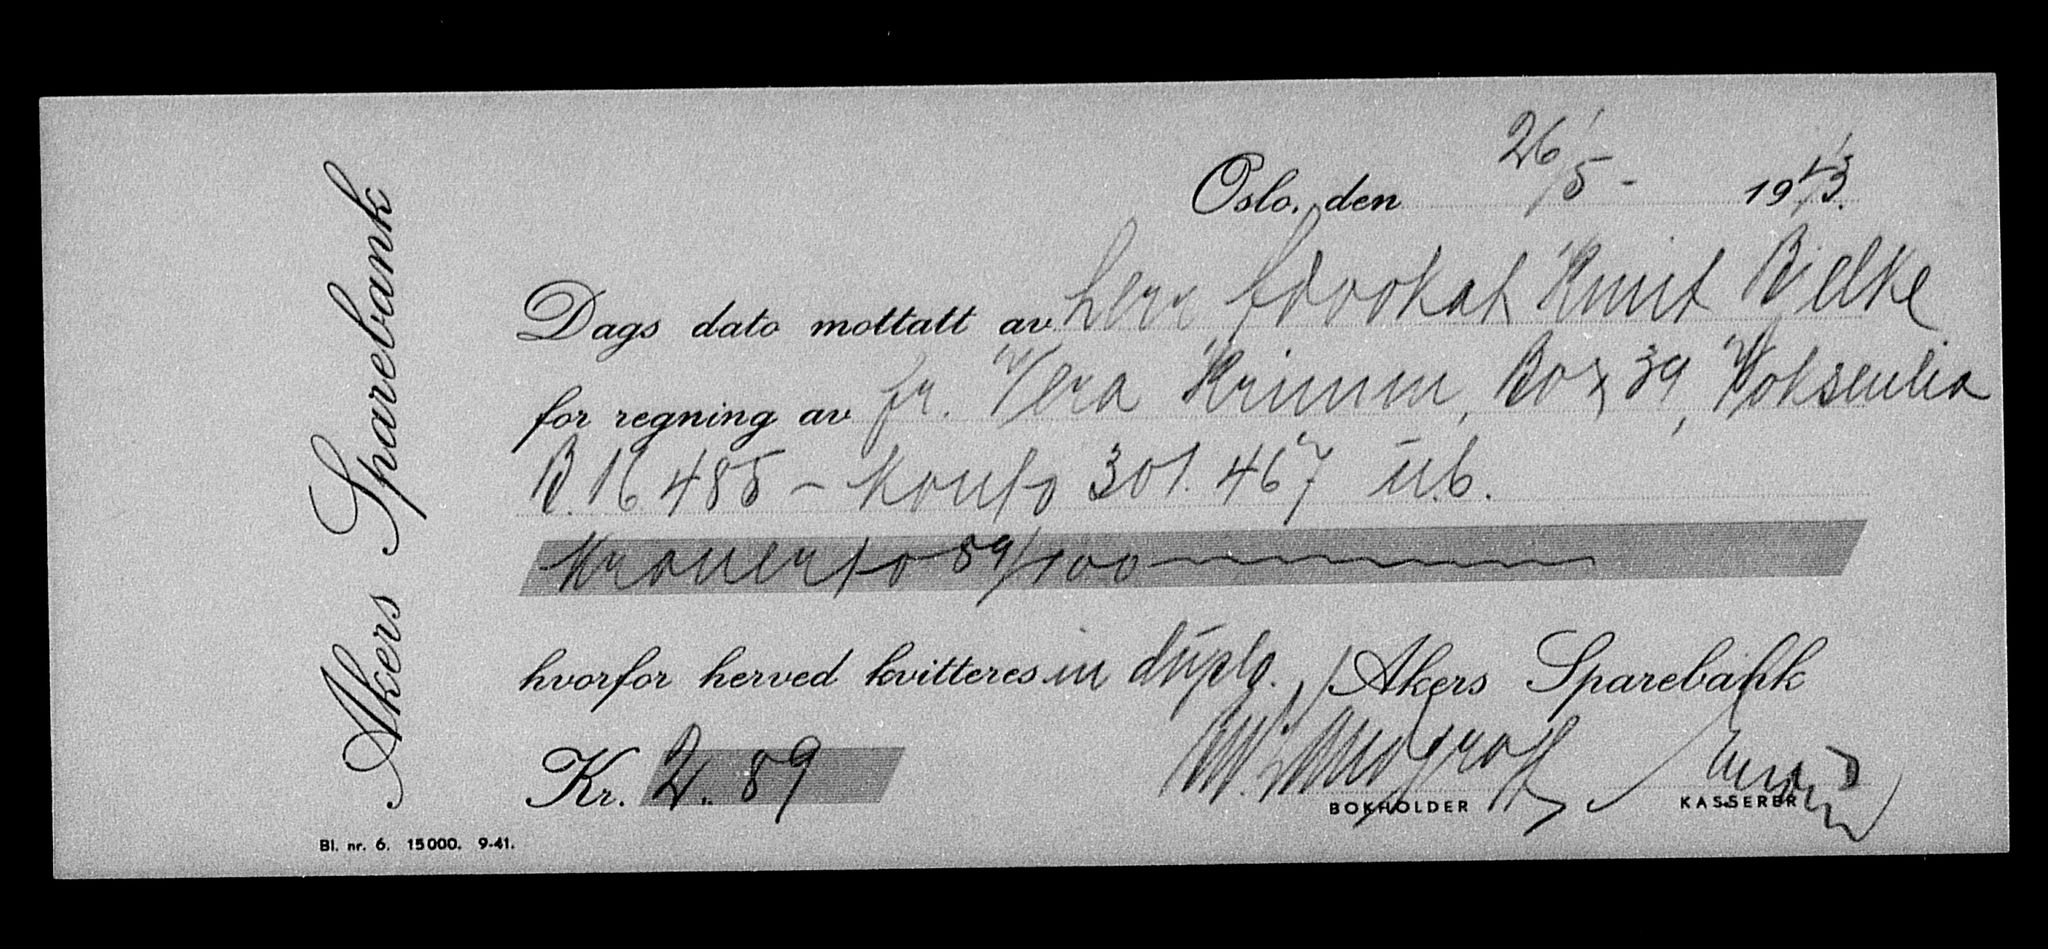 Akers Sparebank
Oslo, den 26/5 - 1943.
Dags dato mottatt av herr Advokat Knut Bielke
for regning av fr. Vera Krimm, Box 39, Voksenlia
B. 16485 - konto 301.467 u.b.
Kroner to 89/100
hvorfor herved kvitteres in duplo. Akers Sparebank
Kr. 2.89
BOKHOLDER KASSERER
Bl. nr. 6. 15000. 9-41.